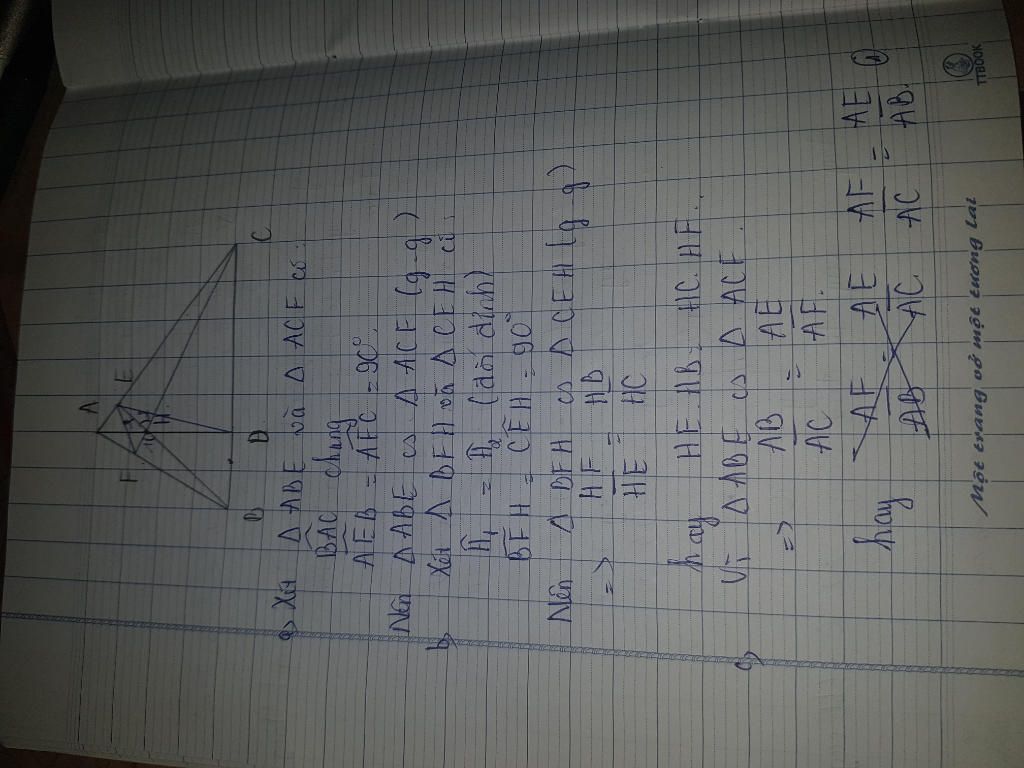 A
F E
H
B D C
a) Xét Δ ABE và Δ ACF có:
BAC chung
AEB = AFC = 90°.
Nên Δ ABE ∽ Δ ACF (g-g)
b) Xét Δ BFH và Δ CEH có:
H₁ = H₂ (đối đỉnh)
BFH = CEH = 90°
Nên Δ BFH ∽ Δ CEH (g-g)
=> HF/HE = HB/HC
hay HE.HB = HC.HF.
c) Vì Δ ABE ∽ Δ ACF.
=> AB/AC = AE/AF.
hay AF/AC = AE/AB. (1)
Một trang vở một tương lai
TTBOOK